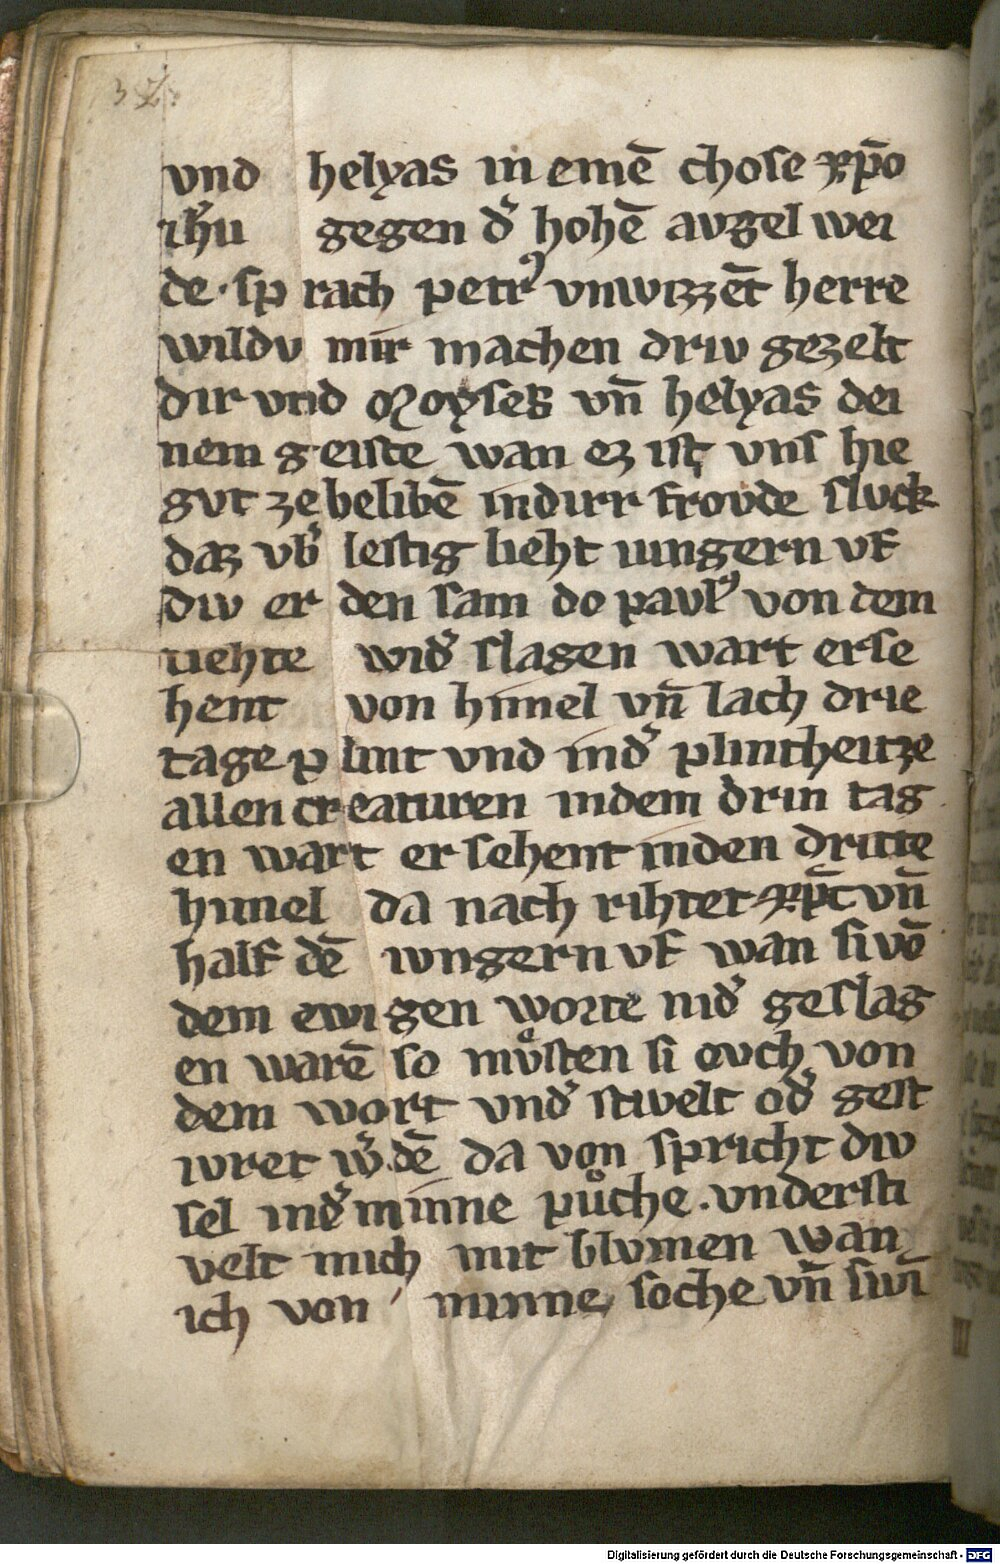 vnd helyas in einē chose xp̄o
ih̄u gegen d̓ hohē avgel wei
de · sprach petr⁹ vnwizzēt herre
wildv mir machen driv gezelt
dir vnd Moyses vn̄ helyas dei
nem geiste wan ez ist vns hie
gvt ze belibē in dirr frovde slvck
daz vb̓ lestig lieht iungern vf
div er den sam do pavl⁹ von dem
liehte wid̓ slagen wart erse
hent von himel vn̄ lach drie
tage plint vnd in d̓ plintheit ze
allen creaturen in dem drin tag
en wart er sehent in den dritte
himel da nach rihtet xp̄c vn̄
half dē ivngern vf wan si vō
dem ewigen worte nid̓ geslag
en warē so mv̊sten si ovch von
dem wort vnd̓ stivelt od̓ gest
ivret w̓dē da von spricht div
sel in d̓ minne půche . vndersti
velt mich mit blvmen wan
ich von minne soche vn̄ siwī